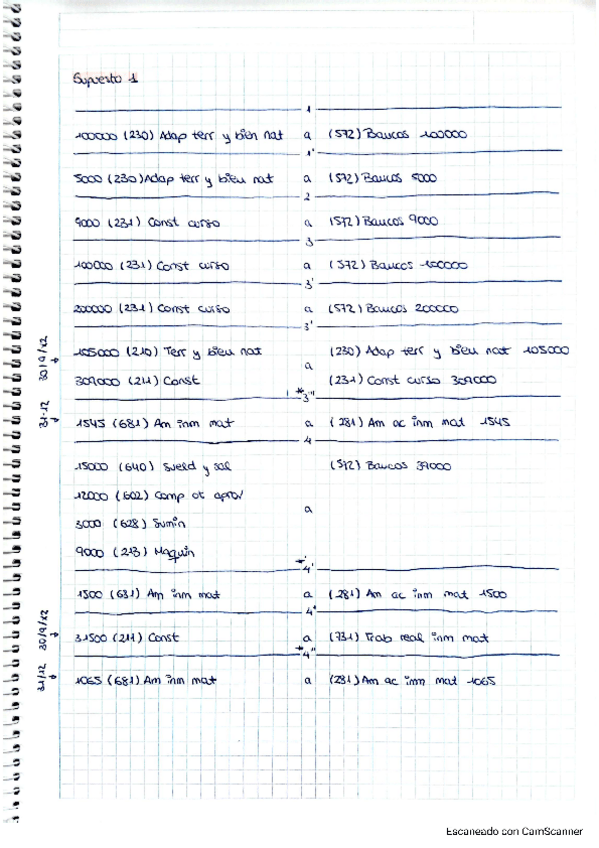 Supuesto 1
1
100000 (230) Adap terr y bien nat a (572) Bancos 100000
1'
5000 (230) Adap terr y bien nat a (572) Bancos 5000
2
9000 (231) Const curso a (572) Bancos 9000
3
100000 (231) Const curso a (572) Bancos 100000
3'
200000 (231) Const curso a (572) Bancos 200000
3'
30/9/22 105000 (210) Terr y bien nat (230) Adap terr y bien nat 105000
a
309000 (211) Const (231) Const curso 309000
* 3''
31-12 1545 (681) Am inm mat a (281) Am ac inm mat 1545
4
15000 (640) Sueld y sal (572) Bancos 39000
12000 (602) Comp ot aprov
a
3000 (628) Sumin
9000 (213) Maquin
* 4'
1500 (681) Am inm mat a (281) Am ac inm mat 1500
4'
30/9/22 31500 (211) Const a (731) Trab real inm mat
* 4''
31/12 1065 (681) Am inm mat a (281) Am ac inm mat 1065
Escaneado con CamScanner